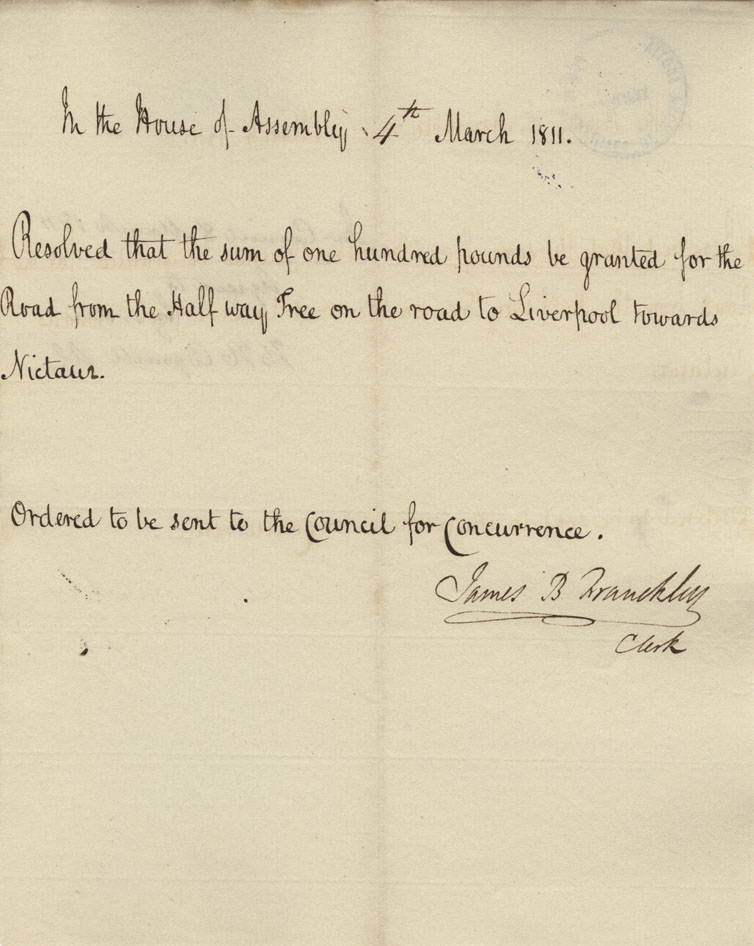 In the House of Assembly 4th March 1811.
Resolved that the sum of one hundred pounds be granted for the
Road from the Half way Tree on the road to Liverpool towards
Nictaux.
Ordered to be sent to the Council for Concurrence.
James B Franckley
Clerk